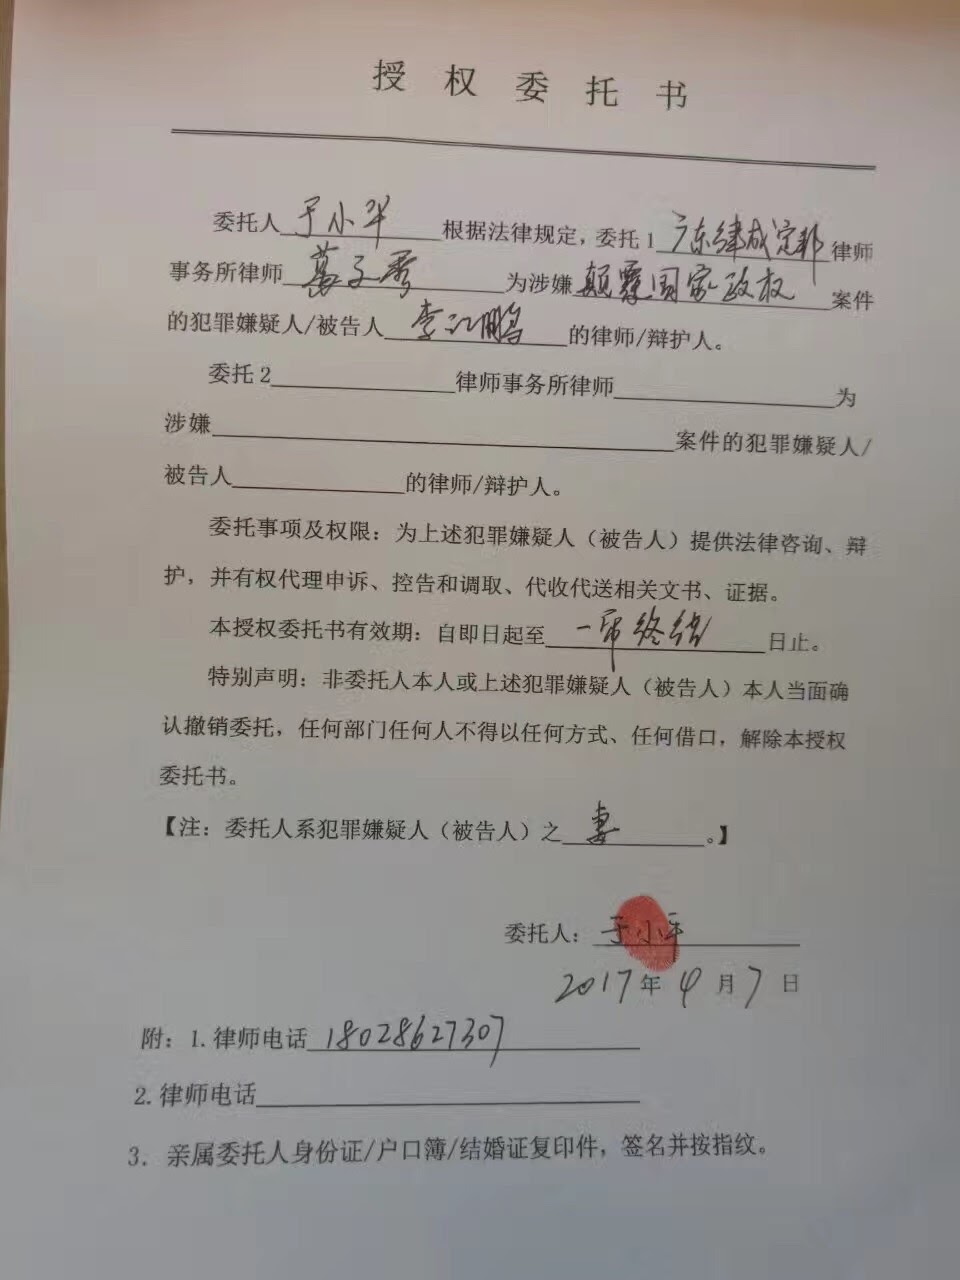 授权委托书
委托人于小平根据法律规定，委托1广东律成定邦律师
事务所律师葛文秀为涉嫌颠覆国家政权案件
的犯罪嫌疑人/被告人李江鹏的律师/辩护人。
委托2 律师事务所律师 为
涉嫌 案件的犯罪嫌疑人/
被告人 的律师/辩护人。
委托事项及权限：为上述犯罪嫌疑人（被告人）提供法律咨询、辩
护，并有权代理申诉、控告和调取、代收代送相关文书、证据。
本授权委托书有效期：自即日起至一审终结日止。
特别声明：非委托人本人或上述犯罪嫌疑人（被告人）本人当面确
认撤销委托，任何部门任何人不得以任何方式、任何借口，解除本授权
委托书。
【注：委托人系犯罪嫌疑人（被告人）之妻。】
委托人：于小平
2017年4月7日
附：1.律师电话18028627307
2.律师电话
3．亲属委托人身份证/户口簿/结婚证复印件，签名并按指纹。